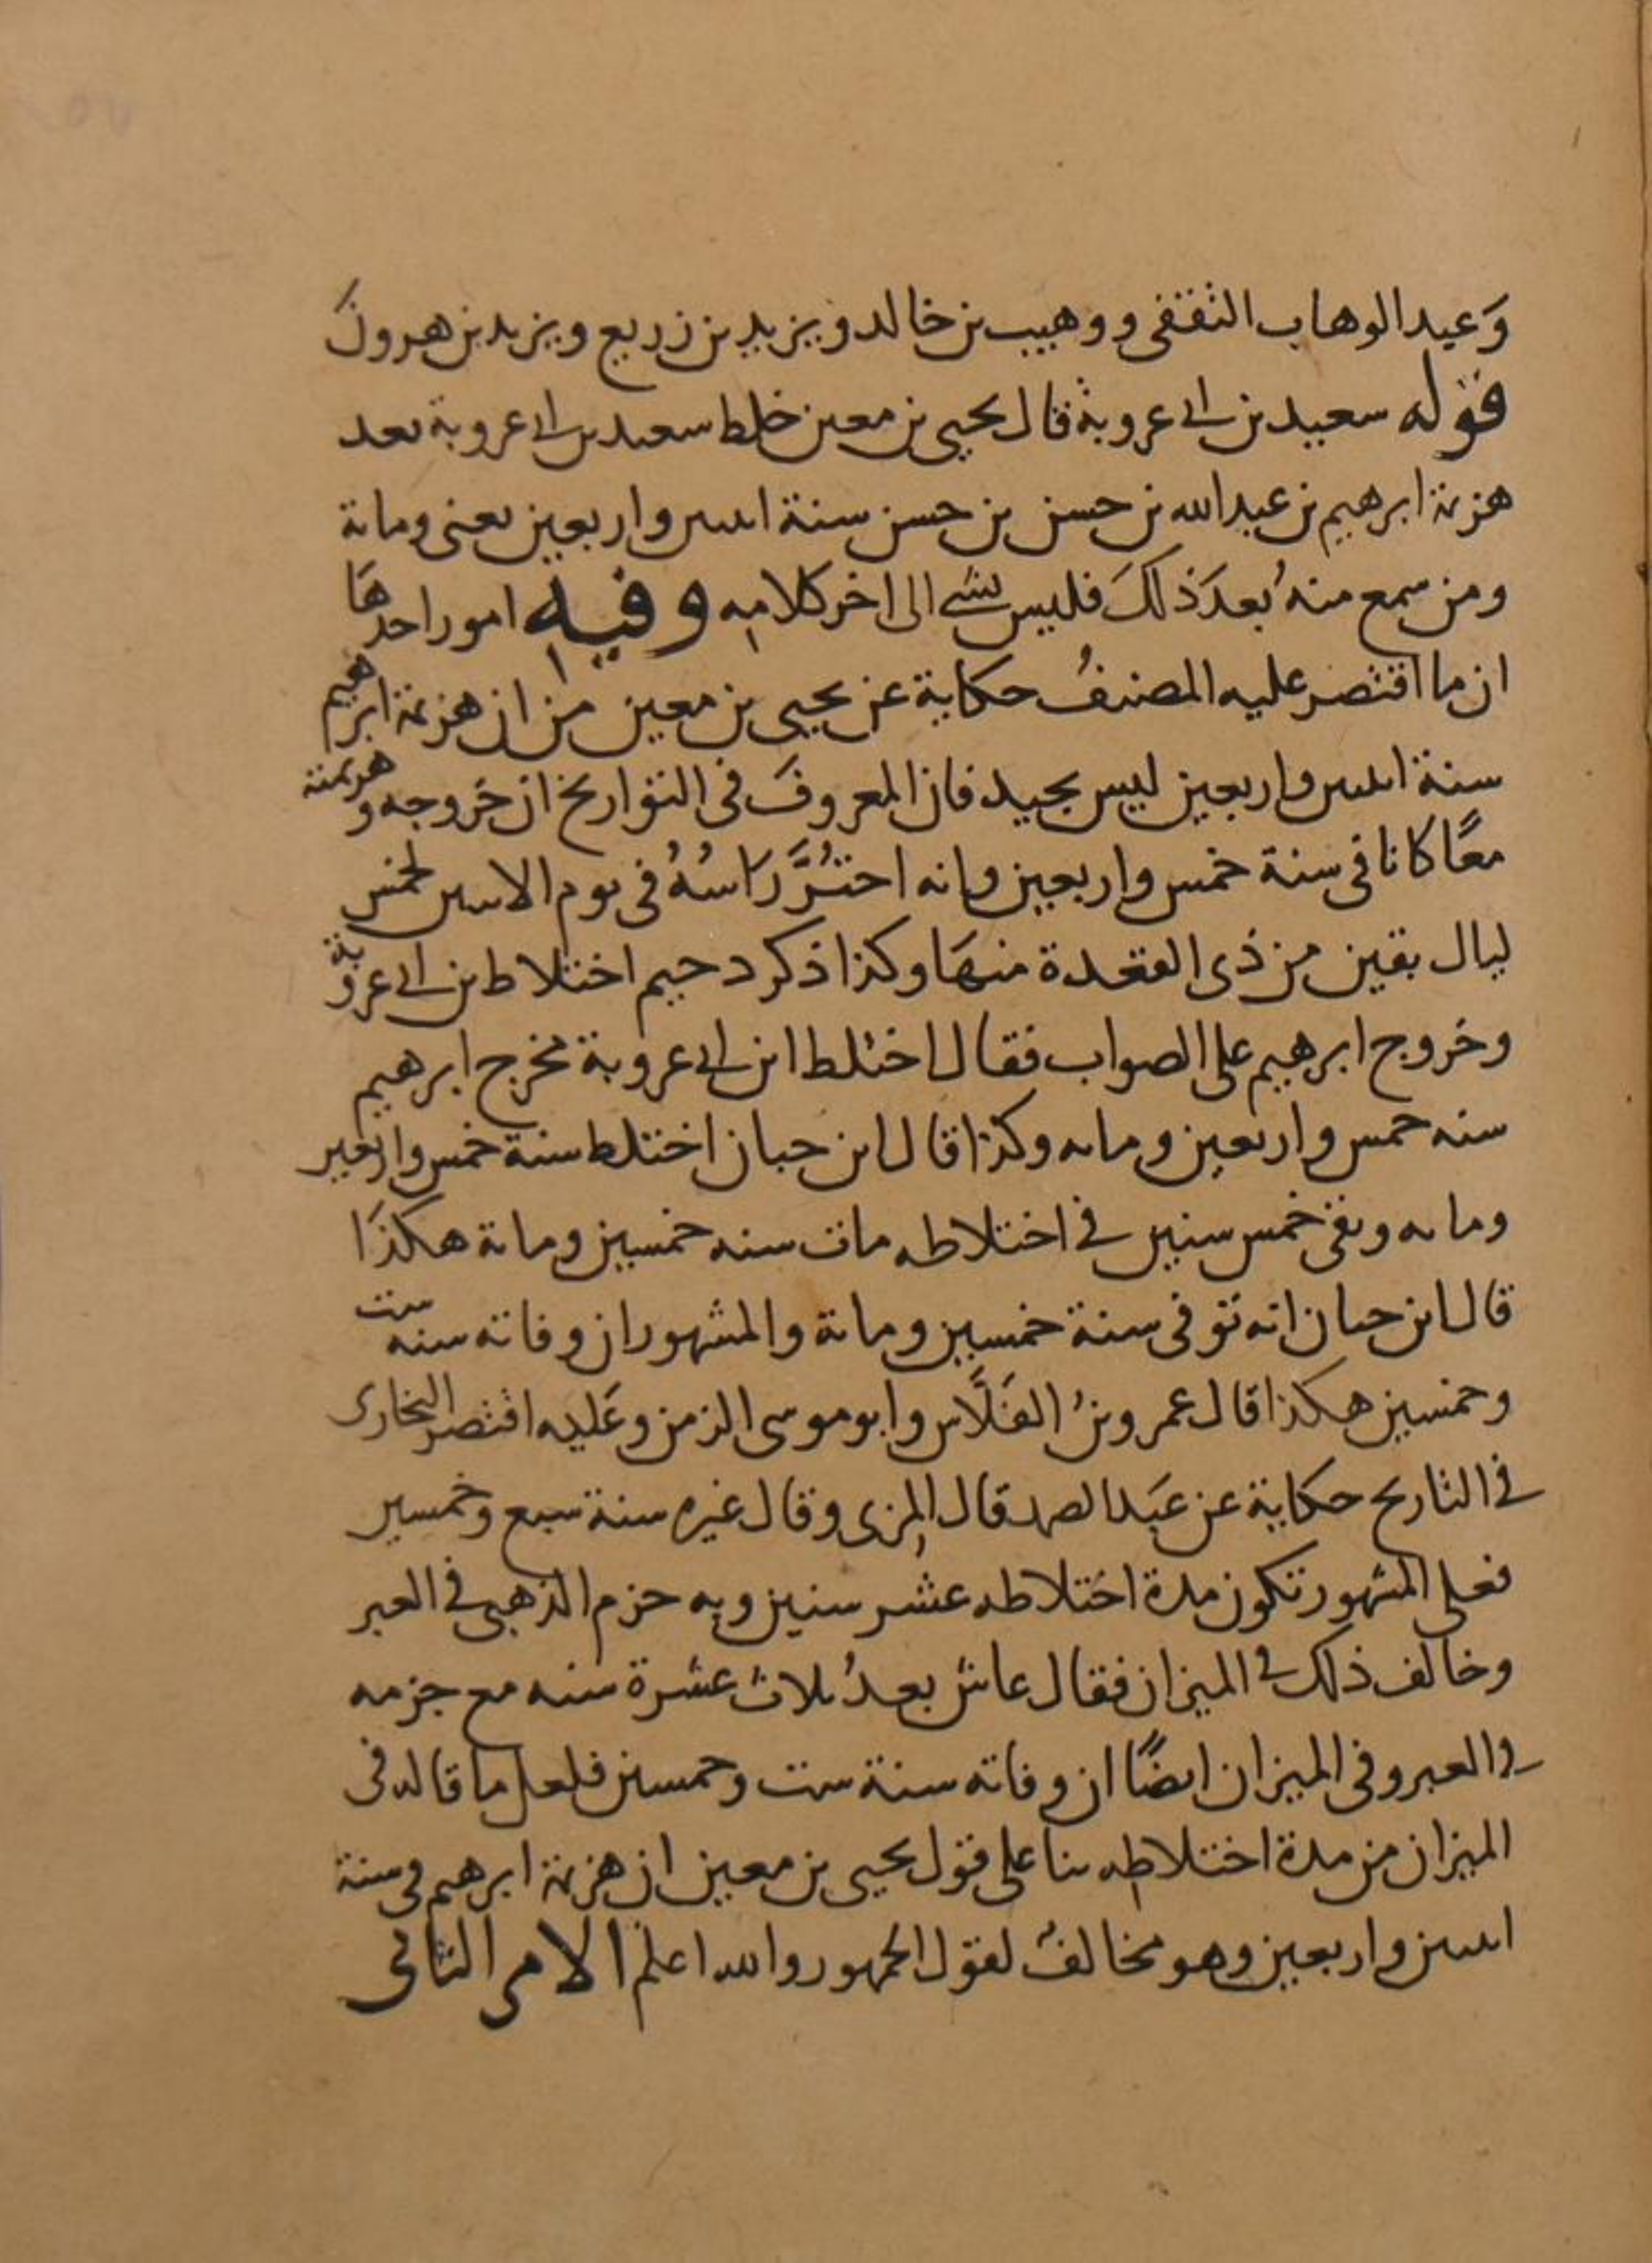 وَعبد الوهاب الثقفى ووهيب بن خالد ويزيد بن زريع ويزيد بن هرونَ
قوله سعيد بن ابى عروبة قال يحيى بن معين خلط سعيد بن ابى عروبة بعد
هزيمة ابرهيم بن عبد الله بن حسن بن حسن سنة اثنين واربعين يعنى ومائة
ومن سمع منهُ بعدَ ذلكَ فليس بشى الى اخر كلامه وفيه امور احدهَا
ان ما اقتصر عليه المصنفُ حكاية عن يحيى بن معين من ان هزيمة ابرهيم
سنة اثنين واربعين ليس بجيد فان المعروفَ فى التواريخ ان خروجه وهزيمته
معًا كانا فى سنة خمس واربعين وانه احتُزَّ رَاسُهُ فى يوم الاثنين لخمس
ليال بقين من ذى القعدة منهَا وكذا ذكر دحيم اختلاط بن ابى عروبة
وخروج ابرهيم على الصواب فقال اختلط ابن ابى عروبة مخرج ابرهيم
سنه خمس واربعين ومائه وكذا قال ابن حبان اختلط سنة خمس واربعين
ومائه وبقى خمس سنين فى اختلاطه مات سنه خمسين ومائة هكذَا
قال ابن حبان انه توفى سنة خمسين ومائة والمشهور ان وفاته سنه ست
وخمسين هكذا قال عمرو بنُ الفَلَّاس وابو موسى الزمن وعَليه اقتصر البخارى
فى التاريخ حكاية عن عبَد الصمد قال المزى وقال غيره سنة سبع وخمسين
فعلى المشهور تكون مدة اختلاطه عشر سنين وبه جزم الذهبى فى العبر
وخالف ذلك فى الميزان فقال عاش بعدُ ثلاث عشرة سنه مع جزمه
فى العبر وفى الميزان ايضًا ان وفاته سنة ست وخمسين فلعل ما قاله فى
الميزان من مدة اختلاطه بنا على قول يحيى بن معين ان هزيمة ابرهيم فى سنة
اثنين واربعين وهو مخالفٌ لقول الجمهور والله اعلم الامر الثانى